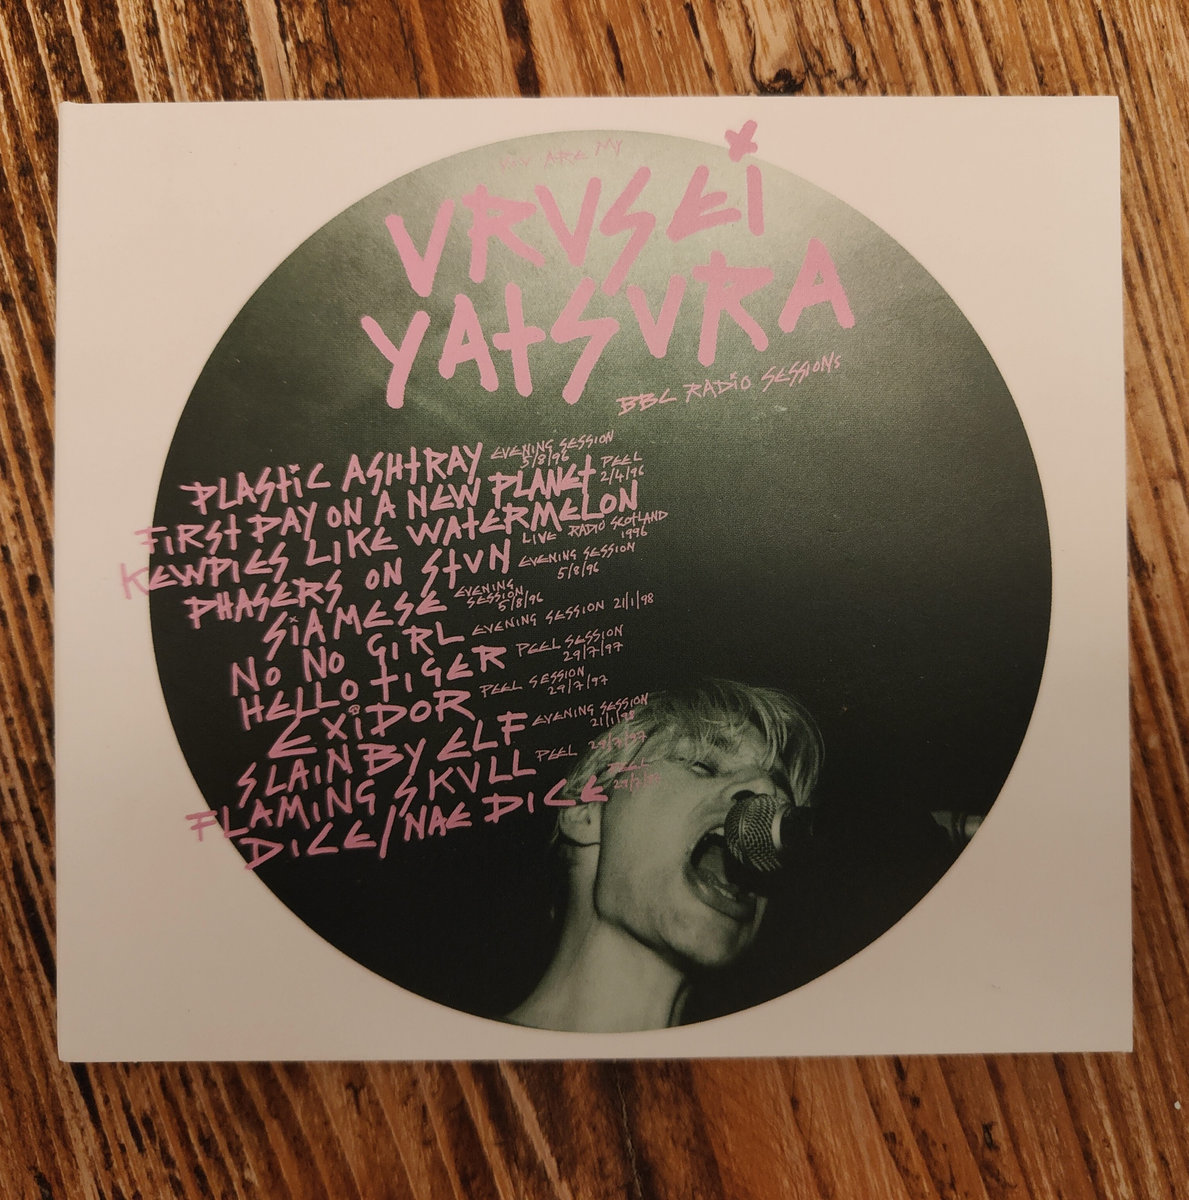 YOU ARE MY
URUSEI
YATSURA
BBC RADIO SESSIONS
PLASTIC ASHTRAY EVENING SESSION 5/8/96
FIRST DAY ON A NEW PLANET PEEL 2/4/96
KEWPIES LIKE WATERMELON LIVE RADIO SCOTLAND 1996
PHASERS ON STUN EVENING SESSION 5/8/96
SIAMESE EVENING SESSION 5/8/96
NO NO GIRL EVENING SESSION 21/1/98
HELLO TIGER PEEL SESSION 29/7/97
EXIDOR PEEL SESSION 29/7/97
SLAIN BY ELF EVENING SESSION 21/1/98
FLAMING SKULL PEEL 29/7/97
DICE/NAE DICE PEEL